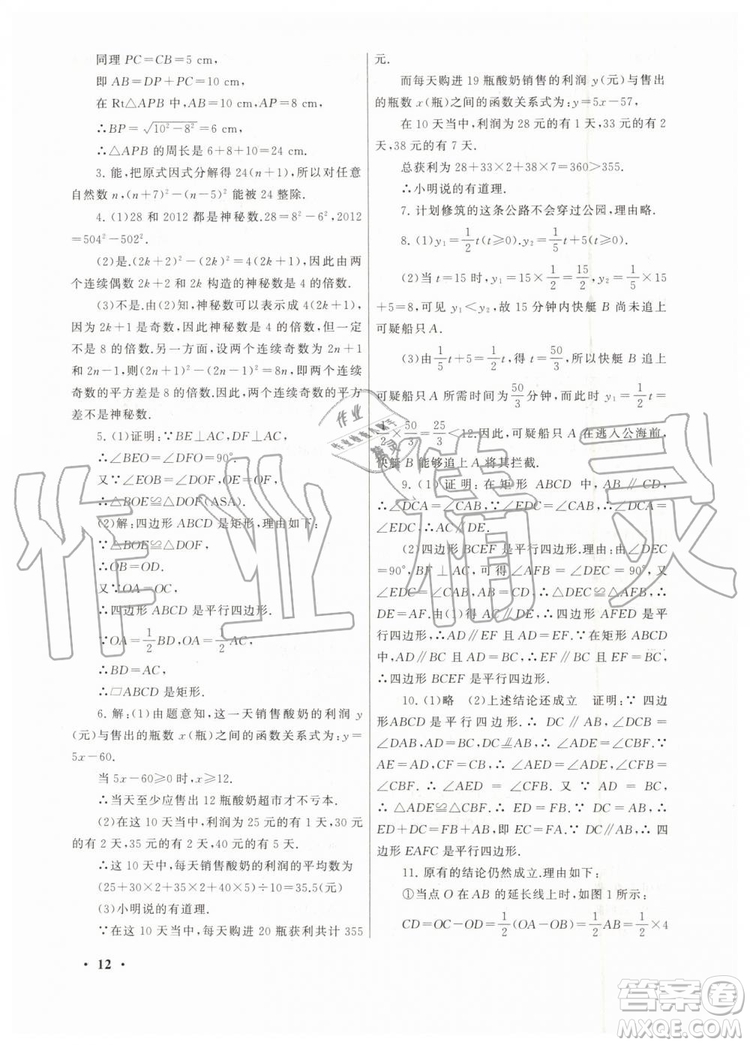 同理 PC=CB=5 cm,
即 AB=DP+PC=10 cm,
在 Rt△APB 中,AB=10 cm,AP=8 cm,
∴BP=√(10²-8²)=6 cm,
∴△APB 的周长是 6+8+10=24 cm.
3. 能,把原式因式分解得 24(n+1),所以对任意
自然数 n,(n+7)²-(n-5)² 能被 24 整除.
4. (1)28 和 2012 都是神秘数. 28=8²-6²,2012
=504²-502².
(2)是. (2k+2)²-(2k)²=4(2k+1),因此由两
个连续偶数 2k+2 和 2k 构造的神秘数是 4 的倍数.
(3)不是. 由(2)知,神秘数可以表示成 4(2k+1),
因为 2k+1 是奇数,因此神秘数是 4 的倍数,但一定
不是 8 的倍数. 另一方面,设两个连续奇数为 2n+1
和 2n-1,则(2n+1)²-(2n-1)²=8n,即两个连续
奇数的平方差是 8 的倍数. 因此,两个连续奇数的平方
差不是神秘数.
5. (1)证明:∵BE⊥AC,DF⊥AC,
∴∠BEO=∠DFO=90°.
又∵∠EOB=∠DOF,OE=OF,
∴△BOE≌△DOF(ASA).
(2)解:四边形 ABCD 是矩形. 理由如下:
∵△BOE≌△DOF,
∴OB=OD.
又∵OA=OC,
∴四边形 ABCD 是平行四边形.
∵OA=1/2 BD,OA=1/2 AC,
∴BD=AC,
∴□ABCD 是矩形.
6. 解:(1)由题意知,这一天销售酸奶的利润 y
(元)与售出的瓶数 x(瓶)之间的函数关系式为:y=
5x-60.
当 5x-60≥0 时,x≥12.
∴当天至少应售出 12 瓶酸奶超市才不亏本.
(2)在这 10 天当中,利润为 25 元的有 1 天,30
元的有 2 天,35 元的有 2 天,40 元的有 5 天.
∴这 10 天中,每天销售酸奶的利润的平均数为
(25+30×2+35×2+40×5)÷10=35.5(元)
(3)小明说的有道理.
∵在这 10 天当中,每天购进 20 瓶获利共计 355
元.
而每天购进 19 瓶酸奶销售的利润 y(元)与售出
的瓶数 x(瓶)之间的函数关系式为:y=5x-57,
在 10 天当中,利润为 28 元的有 1 天,33 元的有
2 天,38 元的有 7 天.
总获利为 28+33×2+38×7=360>355.
∴小明说的有道理.
7. 计划修筑的这条公路不会穿过公园,理由略.
8. (1)y₁=1/2 t(t≥0),y₂=1/5 t+5(t≥0).
(2)当 t=15 时,y₁=15×1/2=7.5,y₂=1/5×15
+5=8,可见 y₁<y₂,故 15 分钟内快艇 B 尚未追上
可疑船只 A.
(3)由 1/5 t+5=1/2 t,得 t=50/3,所以快艇 B 追上
可疑船只 A 所需时间为 50/3 分钟,而在这段时间内,
1/2×50/3=25/3<12. 因此,可疑船只 A 在逃入公海前,
快艇 B 能够追上 A,将其拦截.
9. (1)证明:在矩形 ABCD 中,∵∠ADC=
∠EDC=90°,DC=DC,AD=DE,∴△ADC≌
△EDC,∴AC=EC.
(2)四边形 BCEF 是平行四边形. 理由:由∠DEC
=90°,BF⊥AC,可得 Rt△AFB≌Rt△DEC,∴AF=
DE=AF. 又∵AF∥DE,∴四边形 AFED 为平
行四边形,∴AD∥EF 且 AD=EF. ∵在矩形
ABCD 中,AD∥BC 且 AD=BC,∴EF∥BC 且 EF
=BC,∴四边形 BCEF 是平行四边形.
10. (1)略 (2)上述结论还成立 证明:∵四边
形ABCD 是平行四边形,∴DC∥AB,∴∠ADC=
∠DAB,AD=BC,DC∥AB,DC=AB,∴∠ADE=
∠CBF. ∵AE=AD,CF=CB,∴∠AED=∠ADE,
∠CFB=∠CBF,∴∠AED=∠CFB. 又∵AD=BC,
∴△ADE≌△CBF,∴ED=FB. ∵DC=AB,∴
ED+DC=FB+AB,∴EC=FA,EC∥AF,∴四边
形 EAFC 是平行四边形.
11. 原有的结论仍然成立. 理由如下:
①当点 O 在 AB 的延长线上时,如图 1 所示:
CD=OC-OD=1/2(OA-OB)=1/2 AB=1/2×4
· 12 ·
作业精灵
答案圈
MXQE.COM